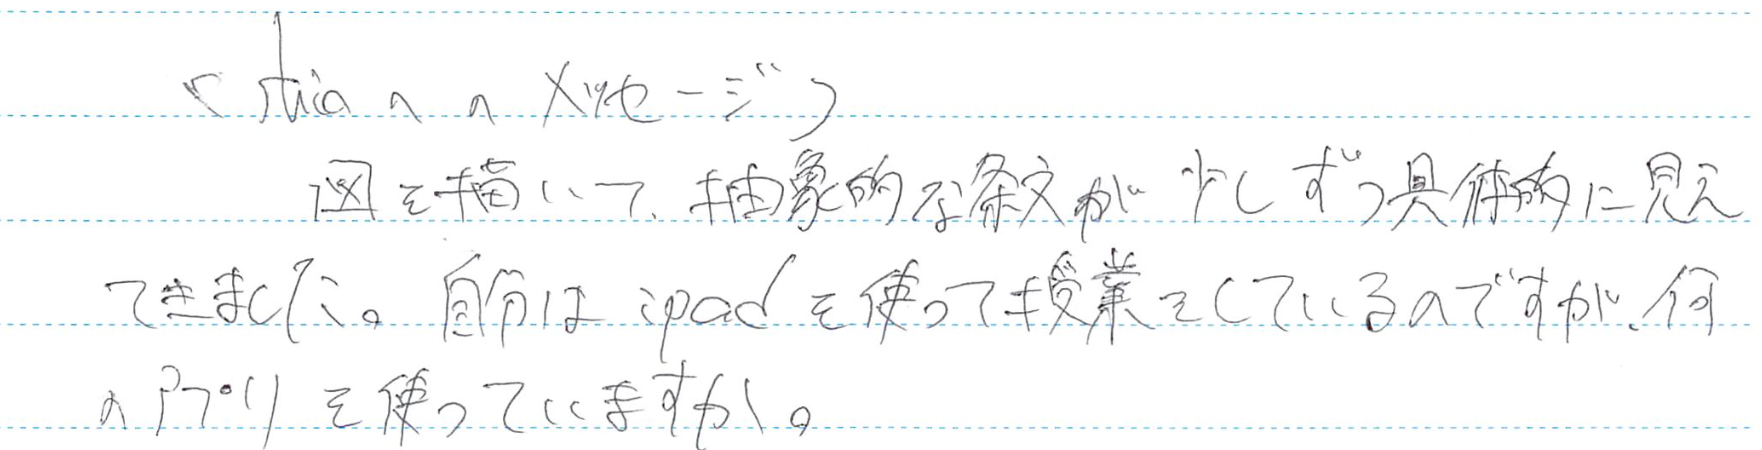 <thiaへのメッセージ>
図を描いて、抽象的な条文が少しずつ具体的に見え
てきました。自分はipadを使って授業をしているのですが、何
のアプリを使っていますか。